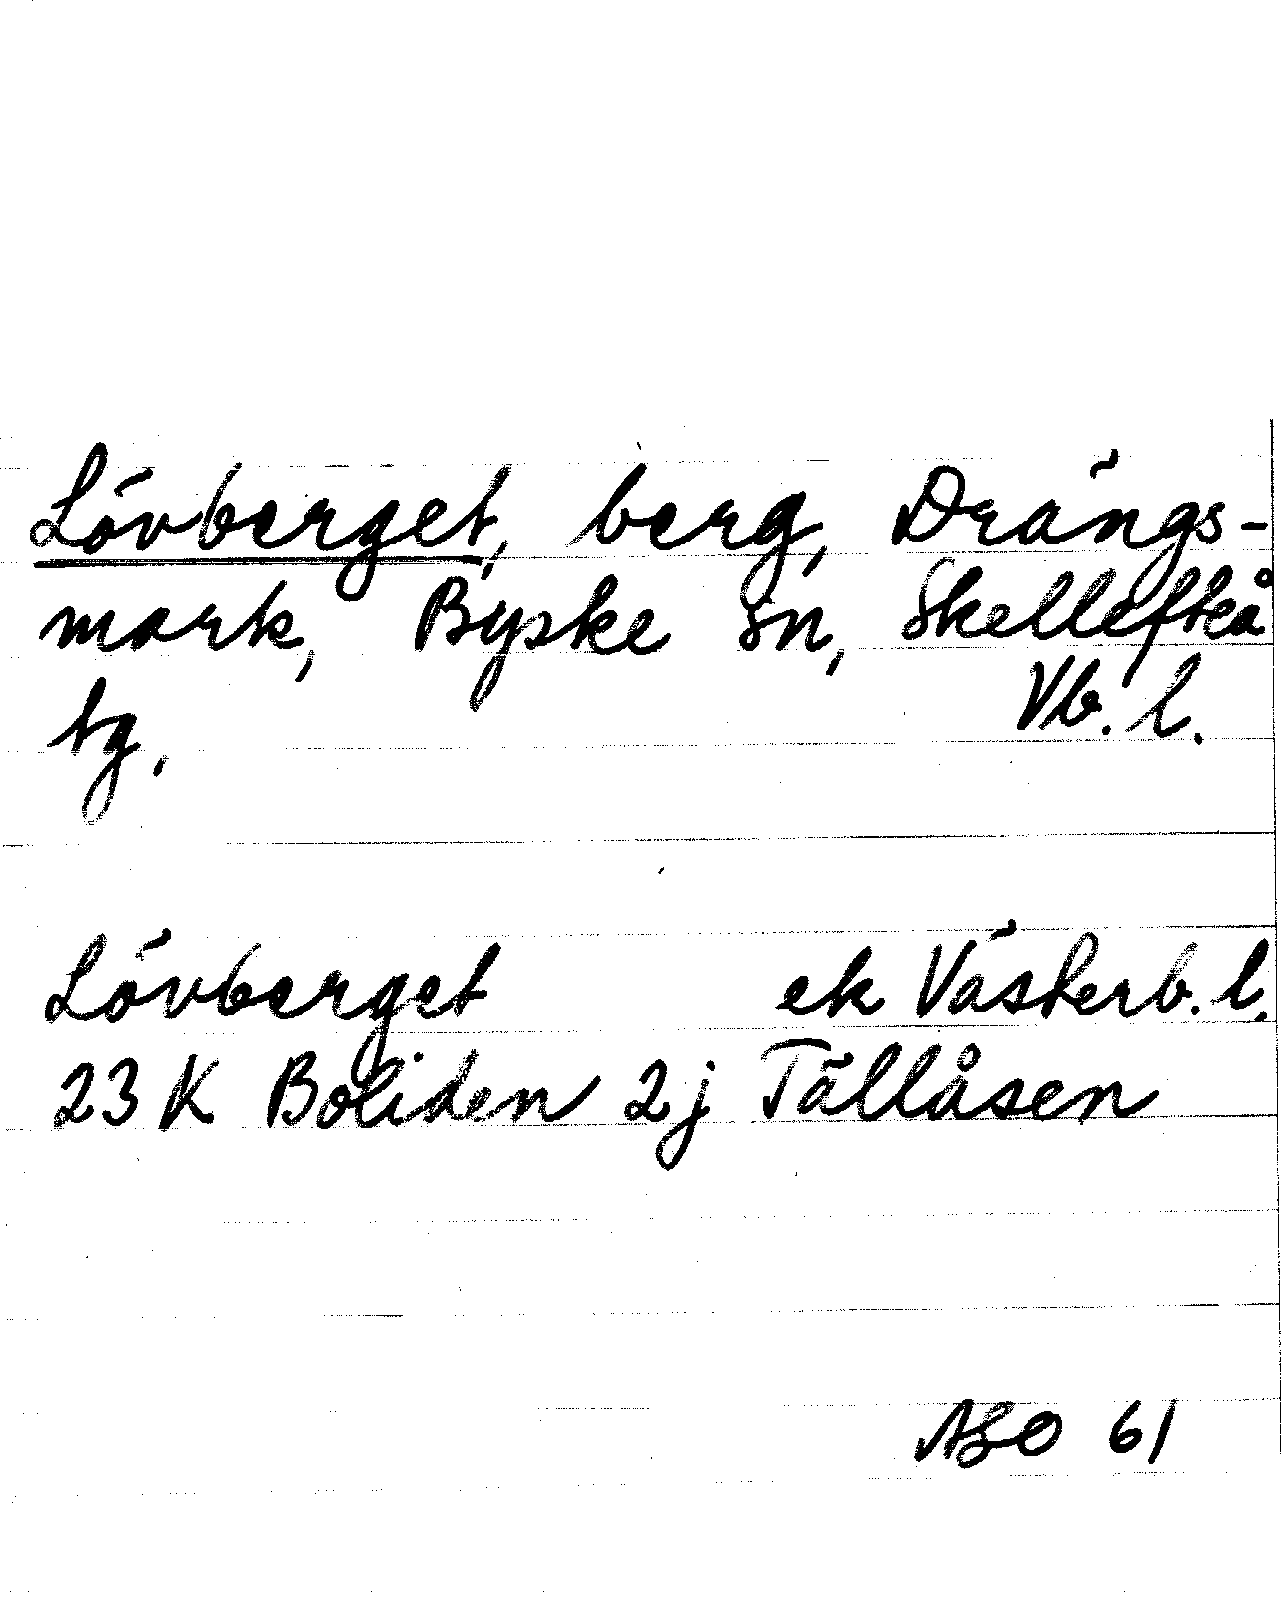 Lövberget, berg, Drängs-
mark, Byske sn, Skellefteå
tg. Vb. l.
Lövberget ek Västerb. l.
23 K Boliden 2j Tällåsen
ABO 61